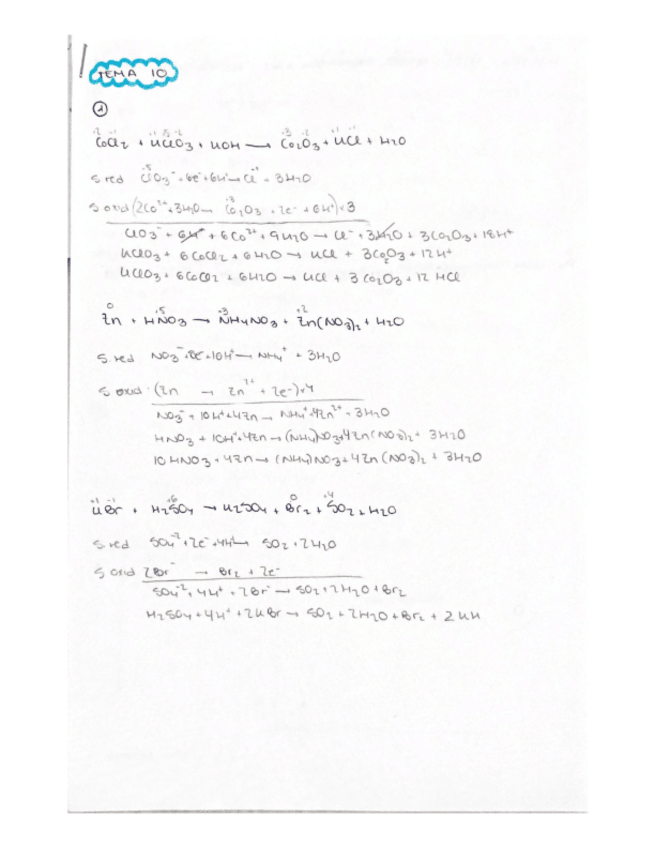 TEMA 10
①
CoCl2 + KClO3 + KOH → Co2O3 + KCl + H2O
S. red ClO3⁻ + 6e⁻ + 6H⁺ → Cl⁻ + 3H2O
S oxid (2Co²⁺ + 3H2O → Co2O3 + 2e⁻ + 6H⁺) × 3
ClO3⁻ + 6H⁺ + 6Co²⁺ + 9H2O → Cl⁻ + 3H2O + 3Co2O3 + 18H⁺
KClO3 + 6CoCl2 + 6H2O → KCl + 3Co2O3 + 12H⁺
KClO3 + 6CoCl2 + 6H2O → KCl + 3Co2O3 + 12 HCl
Zn + HNO3 → NH4NO3 + Zn(NO3)2 + H2O
S. red NO3⁻ + 8e⁻ + 10H⁺ → NH4⁺ + 3H2O
S oxid (Zn → Zn²⁺ + 2e⁻) × 4
NO3⁻ + 10H⁺ + 4Zn → NH4⁺ + 4Zn²⁺ + 3H2O
HNO3 + 10H⁺ + 4Zn → (NH4)NO3 + 4Zn(NO3)2 + 3H2O
10 HNO3 + 4Zn → (NH4)NO3 + 4Zn(NO3)2 + 3H2O
KBr + H2SO4 → K2SO4 + Br2 + SO2 + H2O
S. red SO4⁻² + 2e⁻ + 4H⁺ → SO2 + 2H2O
S oxid 2Br⁻ → Br2 + 2e⁻
SO4⁻² + 4H⁺ + 2Br⁻ → SO2 + 2H2O + Br2
H2SO4 + 4H⁺ + 2KBr → SO2 + 2H2O + Br2 + 2KH